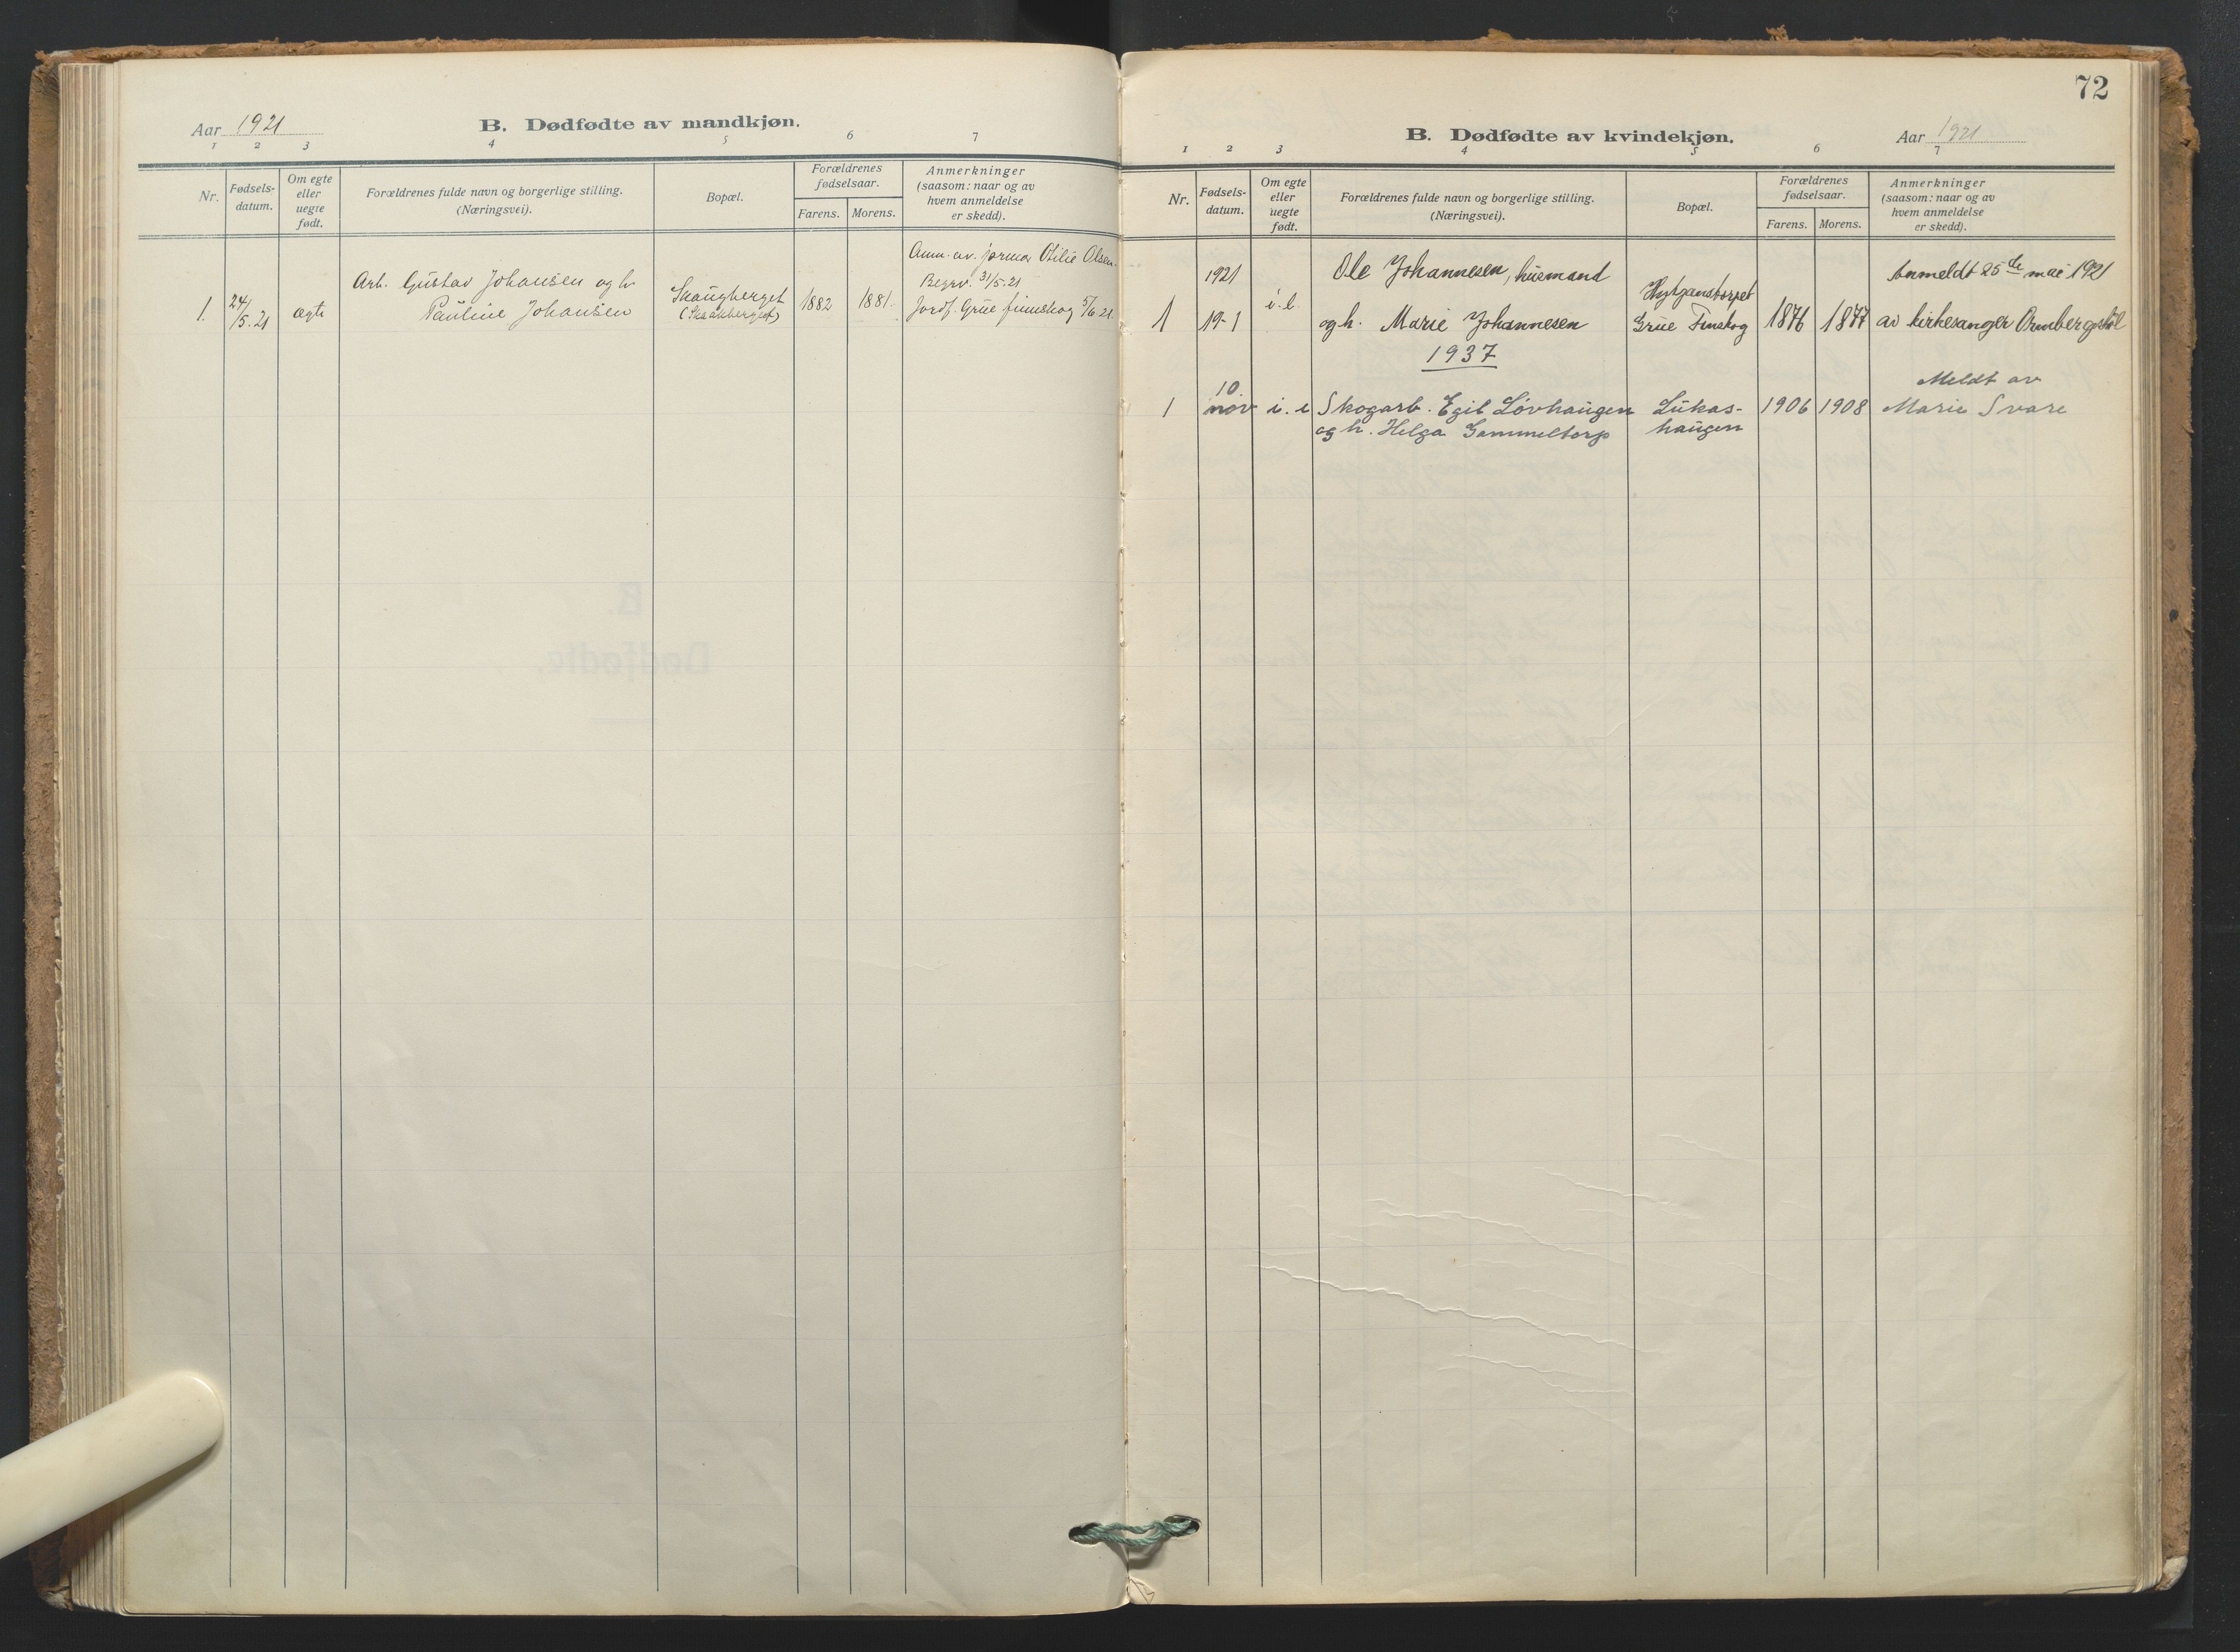 Aar 1921
B. Dødfødte av mandkjøn.
1 2 3 4 5 6 7
Nr. Fødsels-datum. Om egte eller uegte født. Forældrenes fulde navn og borgerlige stilling. (Næringsvei). Bopæl. Forældrenes fødselsaar. Farens. Morens. Anmerkninger (saasom: naar og av hvem anmeldelse er skedd).
Anm. av. jormor Otilie Olsen.
Arb. Gustav Johansen og h. Begrv. 31/5.21
1. 24/5.21 ægte Pauline Johansen Skaugberget (Skaakberget) 1882 1881. Jordf. Grue finnskog 5/6 21
72
B. Dødfødte av kvindekjøn.
Aar 1921
1 2 3 4 5 6 7
Nr. Fødsels-datum. Om egte eller uegte født. Forældrenes fulde navn og borgerlige stilling. (Næringsvei). Bopæl. Forældrenes fødselsaar. Farens. Morens. Anmerkninger (saasom: naar og av hvem anmeldelse er skedd).
1921 Ole Johannesen, husmand Anmeldt 25de mai 1921
1 19-1 og h. Marie Johannesen Grue Finskog 1876 1877 av kirkesanger
1937
10. Meldt av
1 nov i. e Skogarb. Egil Løvhaugen Lukas- 1906 1908 Marie Svare
og h. Helga Gammeltorp haugen
B.
Dødfødte.